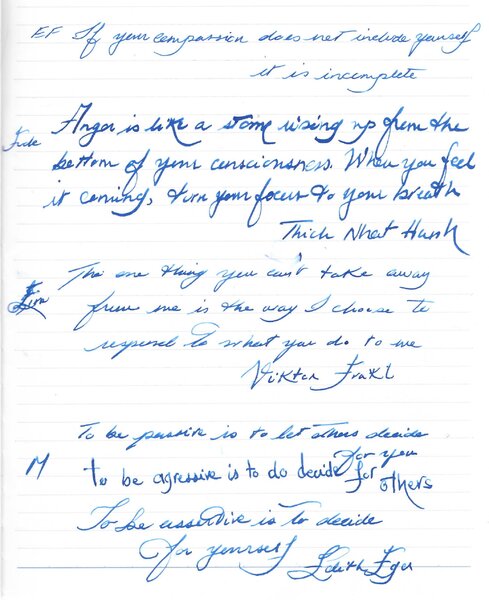 EF If your compassion does not include yourself
it is incomplete
Anger is like a storm rising up from the
bottom of your consciousness. When you feel
it coming, turn your focus to your breath
Thich Nhat Hanh
The one thing you can't take away
from me is the way I choose to
respond to what you do to me
Viktor Frakl
To be passive is to let others decide
for you
M to be agressive is to do decide for
others
To be assertive is to decide
for yourself
Edith Eger